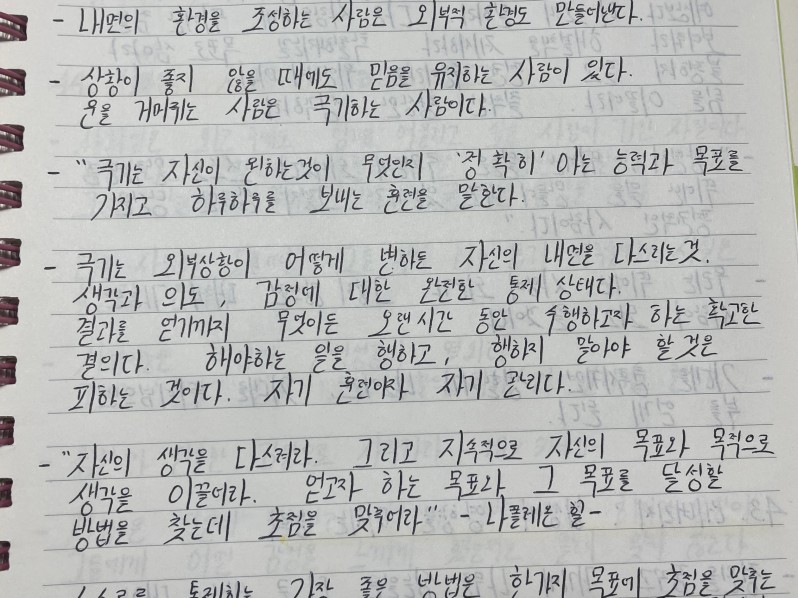 - 내면의 환경을 조성하는 사람은 외부적 환경도 만들어낸다.
- 상황이 좋지 않을 때에도 믿음을 유지하는 사람이 있다.
운을 거머쥐는 사람은 극기하는 사람이다.
- "극기는 자신이 원하는것이 무엇인지 '정확히' 아는 능력과 목표를
가지고 하루하루를 보내는 훈련을 말한다.
- 극기는 외부상황이 어떻게 변하든 자신의 내면을 다스리는것.
생각과 의도, 감정에 대한 완전한 통제 상태다.
결과를 얻기까지 무엇이든 오랜시간 동안 수행하고자 하는 확고한
결의다. 해야하는 일을 행하고, 행하지 말아야 할것은
피하는 것이다. 자기 훈련이자 자기 관리다.
- "자신의 생각을 다스려라. 그리고 지속적으로 자신의 목표와 목적으로
생각을 이끌어라. 얻고자 하는 목표와 그 목표를 달성할
방법을 찾는데 초점을 맞추어라" - 나폴레온 힐-
스스로를 통제하는 가장 좋은 방법은 한가지 목표에 초점을 맞추는